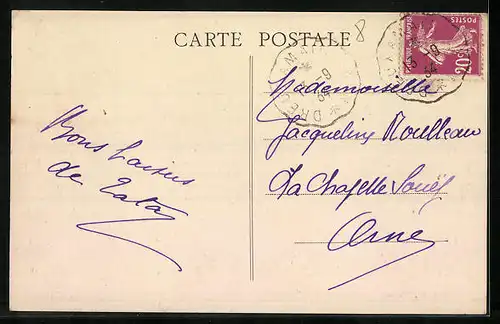 CARTE POSTALE
8
POSTES
20c
Mademoiselle
Jacqueline Moulleau
La Chapelle Souëf
Orne
Bons baisers
de Tata